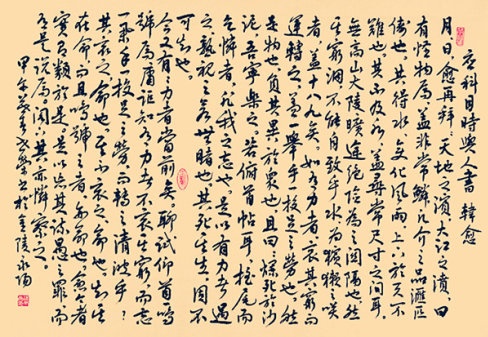 應科目時與人書 韓愈
月、日愈再拜天地之濱大江之濆曰
有怪物焉蓋非常鱗凡介之品匯匹
儔也其得水變化風雨上下於天不
難也其不及水蓋尋常尺寸之間耳
無高山大陵曠途絕險為之關隔也然
其窮涸不能自致乎水為獱獺之笑
者蓋十八九矣如有力者哀其窮而
運轉之蓋一舉手一投足之勞也然
是物也負其異於眾也且曰爛死於沙
泥吾寧樂之若俯首帖耳搖尾而
乞憐者非我之志也是以有力者遇
之熟視之若無睹也其死其生固不
可知也
今又有有力者當其前矣聊試仰首一鳴
號焉庸詎知有力者不哀其窮而忘
一舉手一投足之勞而轉之清波乎
其哀之命也其不哀之命也知其
在命而且鳴號之者亦命也愈今者
實有類於是是以忘其疏愚之罪而
有是說焉閣下其亦憐察之
甲午 書於金陵